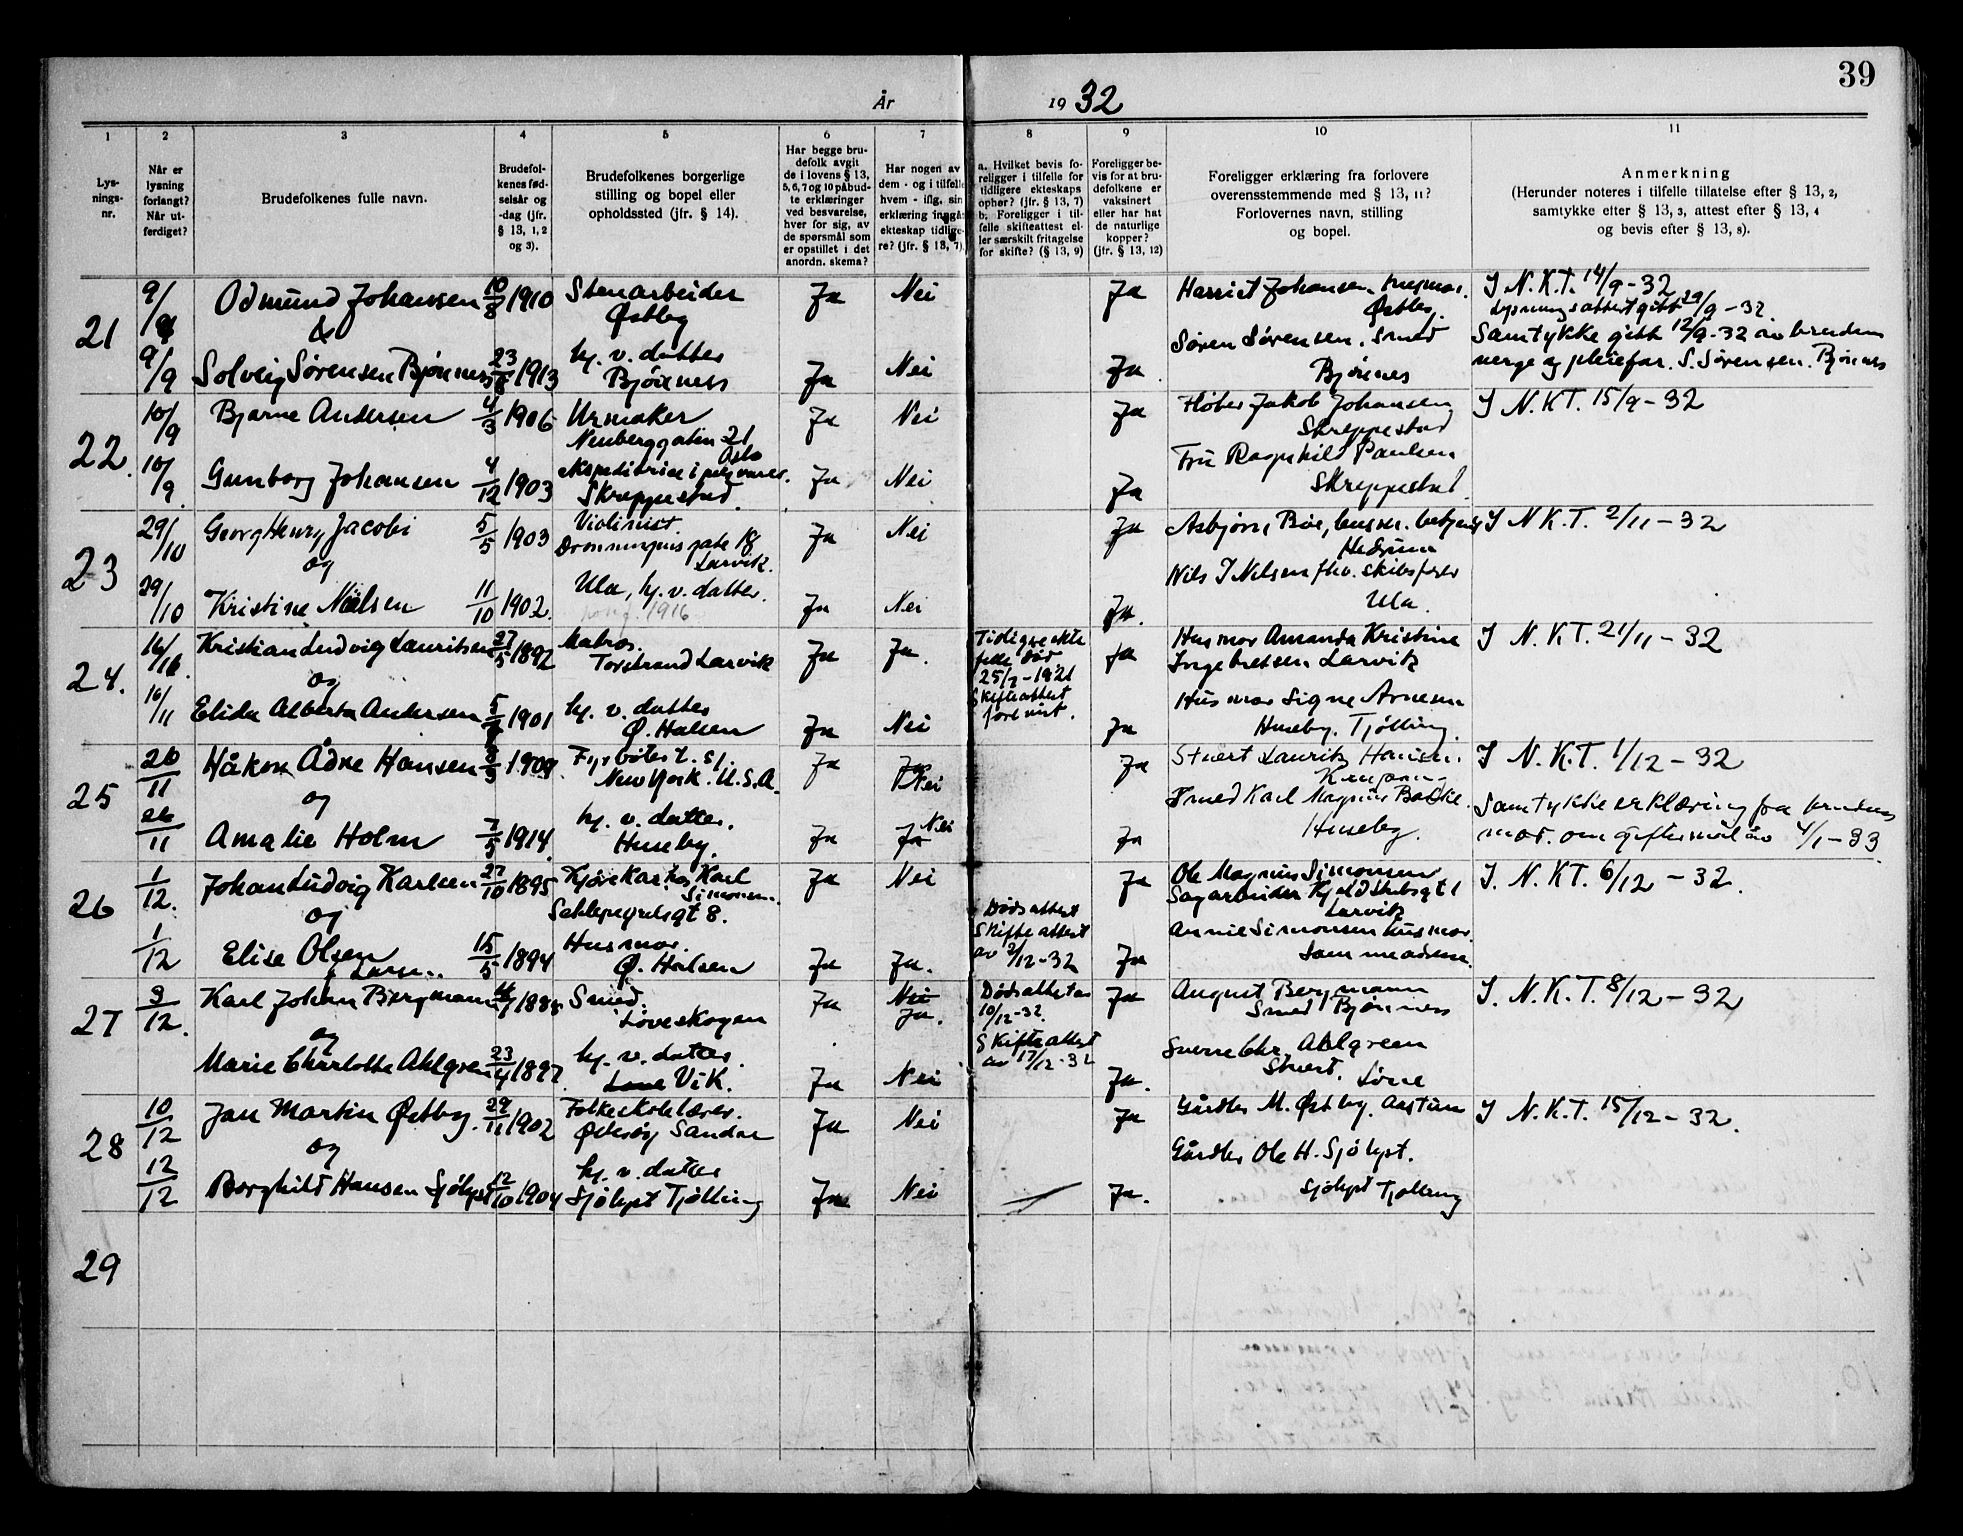 39
År 1932
1 2 3 4 5 6 7 8 9 10 11
Lys-
nings-
nr.
Når er
lysning
forlangt?
Når ut-
ferdiget?
Brudefolkenes fulle navn.
Brudefol-
kenes fød-
selsår og
-dag (jfr.
§ 13, 1, 2
og 3).
Brudefolkenes borgerlige
stilling og bopel eller
opholdssted (jfr. § 14).
Har begge bru-
defolk avgit
de i lovens § 13,
5, 6, 7 og 10 påbud-
te erklæringer
ved besvarelse,
hver for sig, av
de spørsmål som
er opstillet i det
anordn. skema?
Har nogen av
dem - og i tilfelle
hvem - iflg. sin
erklæring inngåt
ekteskap tidlige-
re? (jfr. § 13, 7)
a. Hvilket bevis fo-
religger i tilfelle for
tidligere ekteskaps
ophør? (jfr. § 13, 7)
b. Foreligger i til-
felle skifteattest el-
ler særskilt fritagelse
for skifte? (§ 13, 9)
Foreligger be-
vis for at bru-
defolkene er
vaksinert
eller har hat
de naturlige
kopper?
(jfr. § 13, 12)
Foreligger erklæring fra forlovere
overensstemmende med § 13, 11?
Forlovernes navn, stilling
og bopel.
Anmerkning
(Herunder noteres i tilfelle tillatelse efter § 13, 2,
samtykke efter § 13, 3, attest efter § 13, 4
og bevis efter § 13, 8).
21
9/9 Odmund Johansen 10/8 1910 Stenarbeider
Østby
Ja Nei Ja
Harriet Johansen, husmor.
Østby.
I N.K.T. 14/9-32
Lysningsattest gitt 29/9-32.
&
9/9 Solveig Sørensen Bjønnes 1913 hj. v. datter
Bjønnes
Ja Nei Ja
Søren Sørensen. Smed
Bjønnes
Samtykke gitt 12/9-32 av brudens
verge og pleiefar. S. Sørensen. Bjønnes
22.
10/9 Bjarne Andersen 4/3 1906 Urmaker
Neuberggaten 21
Oslo
Ja Nei Ja
Jakob Johansen
Skreppestad
I N.K.T. 15/9-32
10/9. Gunborg Johansen 4/12 1903
Skreppestad.
Ja Nei Ja
Fru Ragnhild Paulsen
Skreppestad.
23
29/10 Georg Henry Jacobi 5/5 1903 Violinist
Dronningens gate 18
Larvik.
Ja Nei Ja
Asbjørn Bøe,
Hedrum
I N.K.T. 2/11-32
og
29/10 Kristine Nielsen 11/10 1902. Ula, hj. v. datter.
1916
Ja Nei Ja.
Nils I Nilsen fhv. skibsfører
Ula.
24.
16/11 Kristian Ludvig Lauritsen 27/5 1892 Matros.
Torstrand Larvik
Ja Ja.
Tidligere ekte
felle død
25/7-1921
Skifteattest
forevist.
Ja
Husmor Amanda Kristine
Ingebretsen Larvik
I N.K.T. 21/11-32
og
16/11 Elida Alberta Andersen 1901 hj. v. datter
Ø. Halsen
Ja Nei Ja
Husmor Signe Arnesen
Huseby. Tjølling.
25
26/11 Håkon Ådne Hansen 1909. Fyrbøter
New York. U.S.A.
Ja Ja Nei Ja
Stuert Laurits Hansen.
I N.K.T. 1/12-32
og
26/11 Amalie Holm 7/5 1914. hj. v. datter.
Huseby.
Ja Ja Nei Ja
Smed Karl Magnus Bakke.
Huseby.
Samtykkeerklæring fra brudens
mor om giftermål av 4/1-33.
26
1/12. Johan Ludvig Karlsen 27/10 1895 Kjørekar hos Karl
Simonsen.
8.
Ja Nei Ja
Ole Magnus Simonsen
Sagarbeider 1
Larvik
I. N.K.T. 6/12-32.
og
1/12 Elise Olsen 15/5 1894 Husmor.
Ø. Halsen
Ja Ja.
Dødsattest
Skifteattest
av 2/12-32
Ja
Annie Simonsen husmor.
Samme adresse.
27
3/12. Karl Johan Bergmann Smed.
Løveskogen
Ja Nei
Ja.
Dødsattest av
10/12-32.
Skifteattest
av 17/12-32
Ja
August Bergmann
Smed Bjønnes
I. N.K.T. 8/12-32
og
Marie Charlotte Ahlgren 23/4 1897. hj. v. datter.
Vik.
Ja Nei Ja.
Sverre Chr. Ahlgreen
Stuert.
28
10/12 Jan Martin Østby. 29/11 1902 Folkeskolelærer.
Sandar
Ja Nei Ja
Gårdbr M. Østby.
I N.K.T. 15/12-32.
og
12/12 Borghild Hansen Sjølyst 12/10 1904 hj. v. datter
Sjølyst Tjølling
Ja Nei Ja.
Gårdbr Ole H. Sjølyst.
Sjølyst Tjølling
29